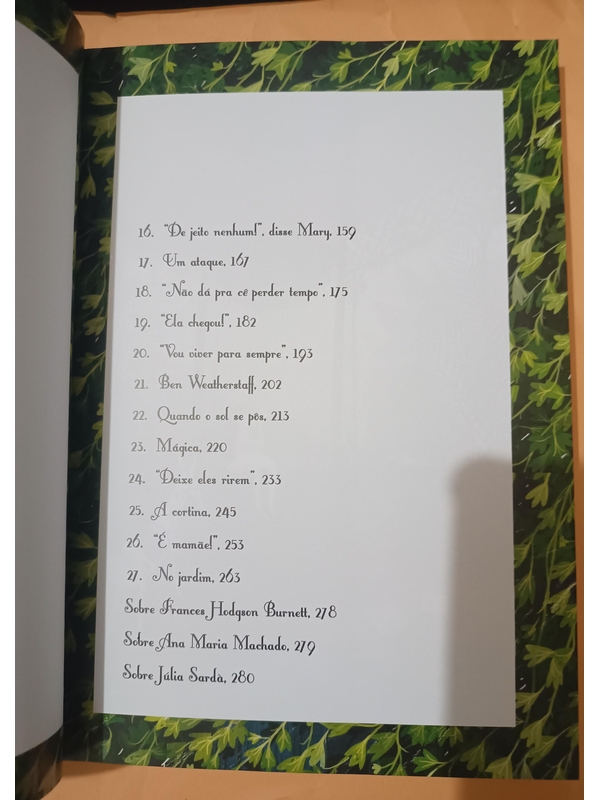 16. "De jeito nenhum!", disse Mary, 159
17. Um ataque, 167
18. "Não dá pra cê perder tempo", 175
19. "Ela chegou!", 182
20. "Vou viver para sempre", 193
21. Ben Weatherstaff, 202
22. Quando o sol se pôs, 213
23. Mágica, 220
24. "Deixe eles rirem", 233
25. A cortina, 245
26. "É mamãe!", 253
27. No jardim, 263
Sobre Frances Hodgson Burnett, 278
Sobre Ana Maria Machado, 279
Sobre Júlia Sardà, 280